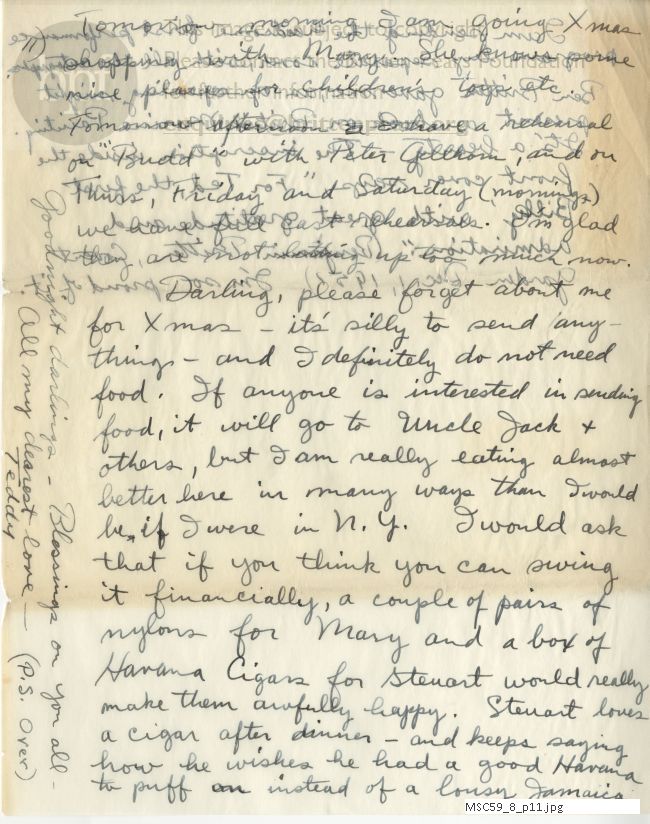 11)
Tomorrow morning I am going Xmas
shopping with Mary. She knows some
nice places for children's toys etc.
Tomorrow afternoon I have a rehearsal
on "Budd" with Peter Gellhorn, and on
Thurs, Friday and Saturday (mornings)
we have full cast rehearsals. I'm glad
they are not up to much now.
Darling, please forget about me
for Xmas - it's silly to send any-
things - and I definitely do not need
food. If anyone is interested in sending
food, it will go to Uncle Jack +
others, but I am really eating almost
better here in many ways than I would
be, if I were in N.Y. I would ask
that if you think you can swing
it financially, a couple of pairs of
nylons for Mary and a box of
Havana Cigars for Steuart would really
make them awfully happy. Steuart loves
a cigar after dinner - and keeps saying
how he wishes he had a good Havana
to puff on instead of a lousy Jamaica
Goodnight darlings - Blessings on you all -
All my dearest love -
Teddy
(P.S. Over)
MSC59_8_p11.jpg